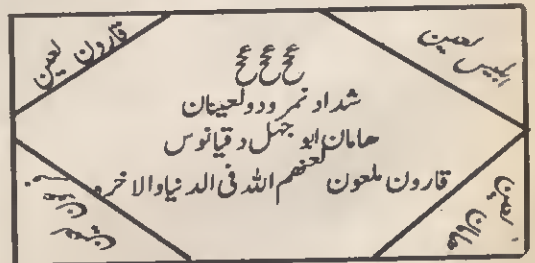 قارون لعین
ابلیس لعین
ععع ععع
شداد نمرود ولعینان
ھامان ابو جہل دقیانوس
قارون ملعون لعنھم اللہ فی الدنیا والاخرہ
لعین
ھامان لعین